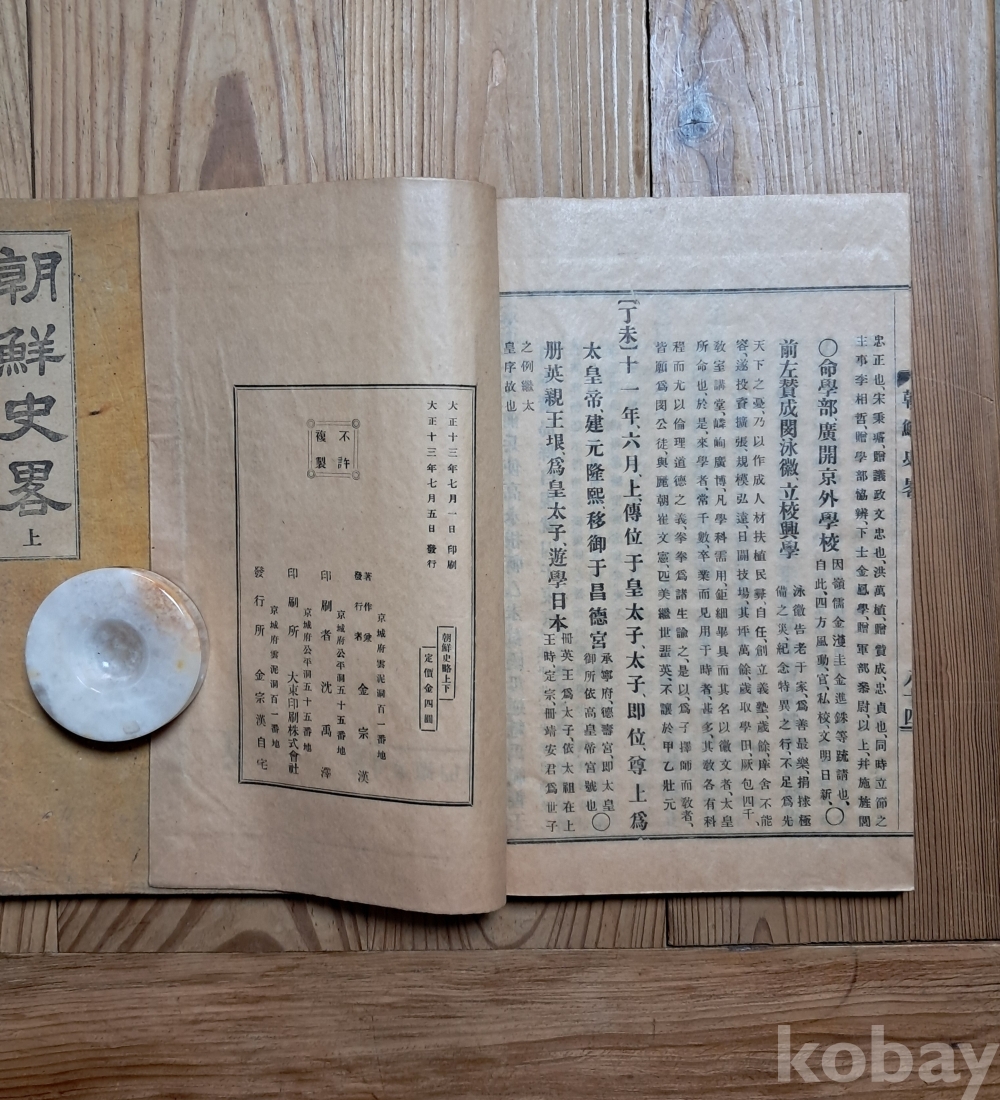 忠正也、宋秉璿贈議政文忠也、洪萬植、贈贊成、忠貞也、同時立節之
主事李相哲、贈學部協辨、下士金鳳學贈軍部叅尉以上、幷施旌閭
〇命學部、廣開京外學校
因嶺儒金濩圭金進銖等䟽請也、
自此、四方風動、官私校、文明日新、〇
前左贊成閔泳徽、立校興學
泳徽告老于家、爲善最樂、捐捄極
備之災、紀念特異之行、不足爲先
天下之憂、乃以作成人材扶植民彛、自任、創立義塾歲餘、庠舍不能
容、遂投資擴張、規模弘遠、日闢技場、其坪萬餘、歲取學田、厥包四千、
敎室講堂、嶙峋廣博、凡學科需用、鉅細畢具、而其名以徽文者、太皇
所命也、於是、來學者、常千數、卒業而見用于時者、甚多、其敎各有科
程而尤以倫理道德之義、拳拳爲諸生諭之、是以、爲子擇師而敎者、
皆願爲閔公徒、與麗朝崔文憲、匹美繼世
不讓於甲乙壯元
【丁未】十一年、六月、上傳位于皇太子、太子、卽位、尊上爲
太皇帝、建元隆熙、移御于昌德宮
承寧府、德壽宮、卽太皇
御所依高皇帝宮號也〇
册英親王垠、爲皇太子、遊學日本
冊英王爲太子、依太祖在上
王時、定宗、冊靖安君爲世子
之例繼太
皇序故也
朝鮮史畧
八十四
大正十三年七月一日 印刷
大正十三年七月五日 發行
不許
複製
朝鮮史略上下
定價金四圓
京城府雲泥洞百一番地
著作兼
發行者 金宗漢
京城府公平洞五十五番地
印刷者 沈禹澤
京城府公平洞五十五番地
印刷所 大東印刷株式會社
京城府雲泥洞百一番地
發行所 金宗漢自宅
朝鮮史畧
上
kobay